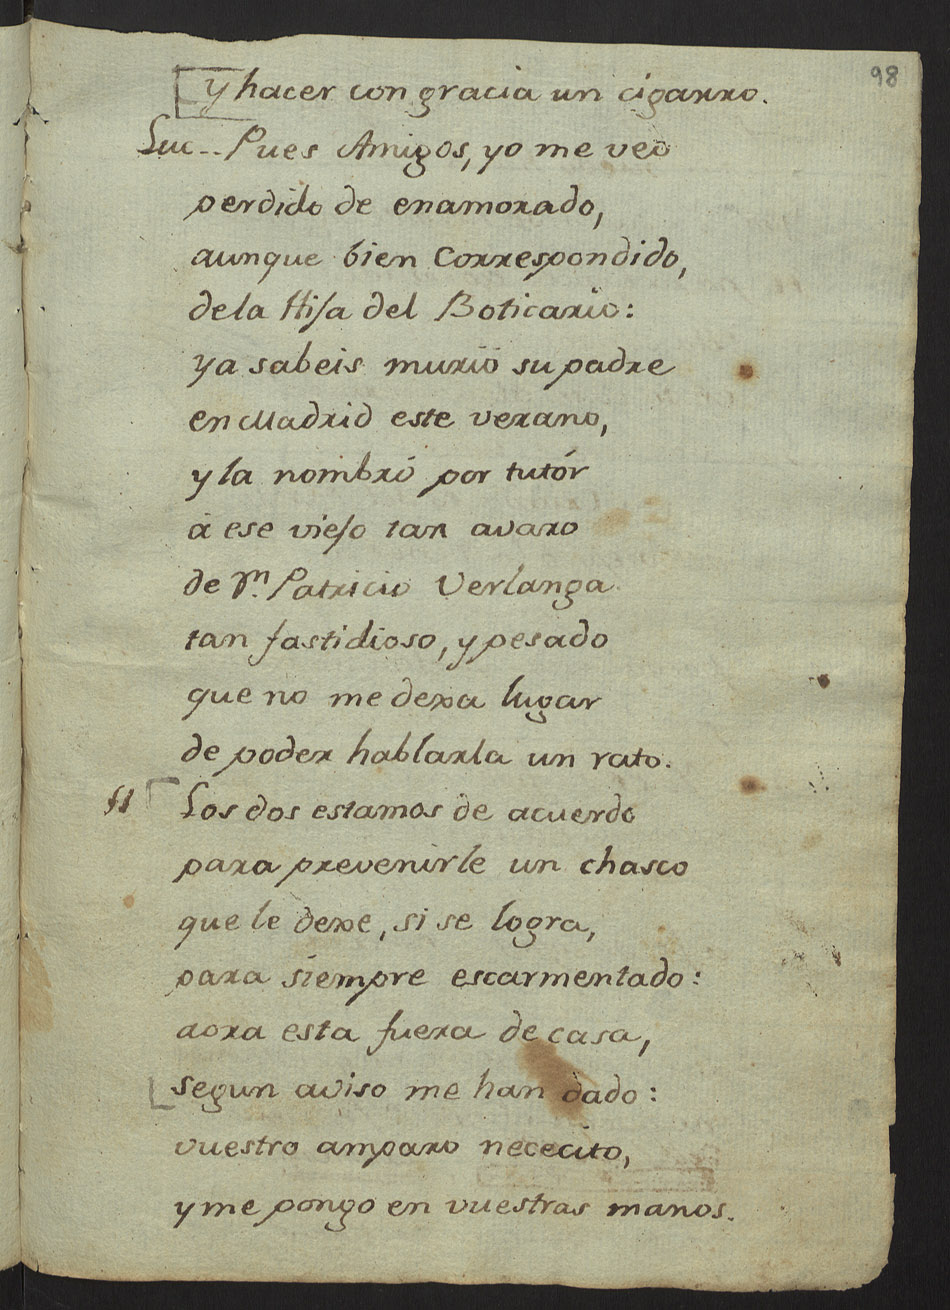 98
y hacer con gracia un cigarro.
Luc-- Pues Amigos, yo me veo
perdido de enamorado,
aunque bien Correspondido,
de la Hija del Boticario:
ya sabeis murió su padre
en Madrid este verano,
y la nombró por tutór
à ese viejo tan avaro
de Dn. Patricio Verlanga
tan fastidioso, y pesado
que no me dexa lugar
de poder hablarla un rato.
Los dos estamos de acuerdo
para prevenirle un chasco
que le dexe, si se logra,
para siempre escarmentado:
aora esta fuera de casa,
segun aviso me han dado:
vuestro amparo nececito,
y me pongo en vuestras manos.